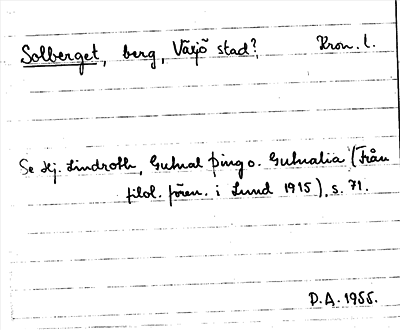 Solberget, berg, Växjö stad? Kron. l.
Se Hj. Lindroth, Gutnal þing o. Gutnalia (Från
filol. fören. i Lund 1915), s. 71.
D.A. 1955.